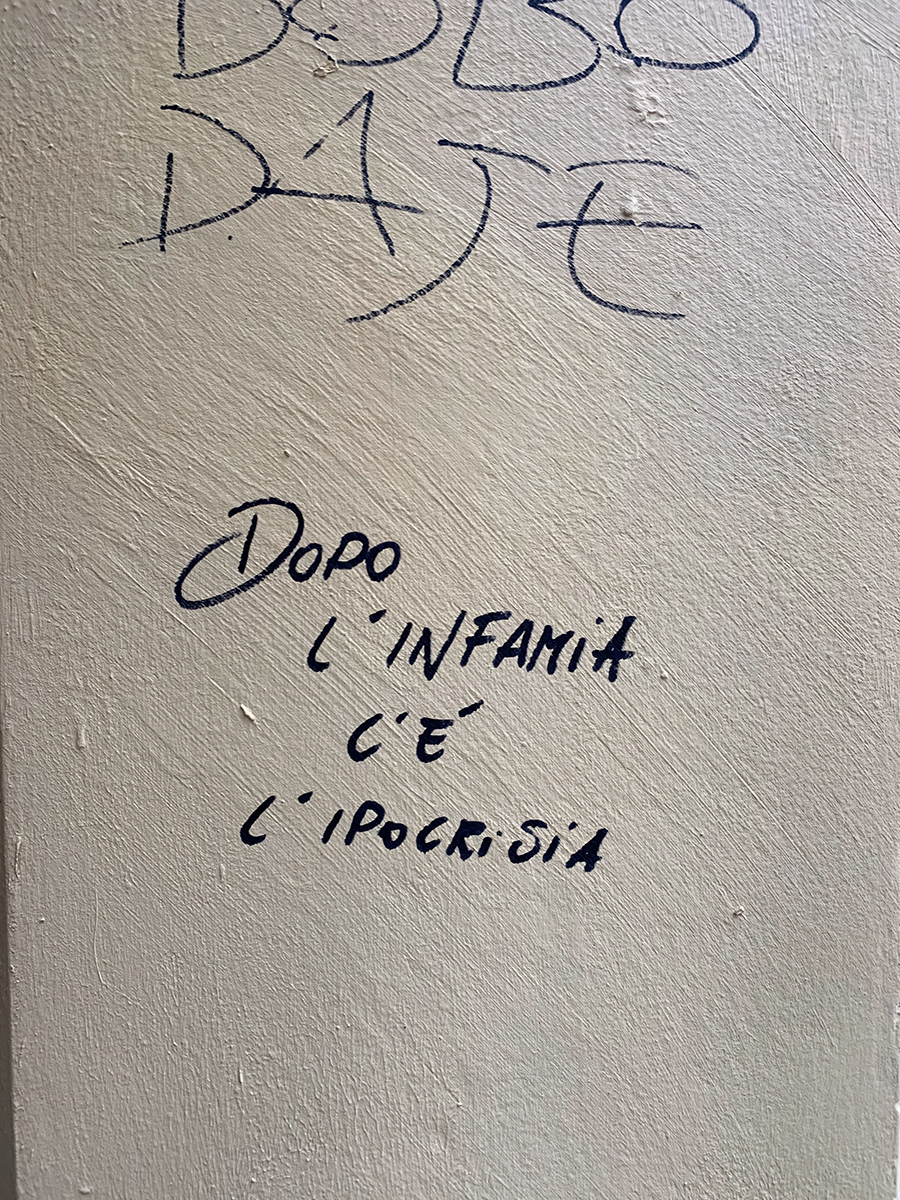 BOBO
DAJE
DOPO
L'INFAMIA
C'É
L'IPOCRISIA